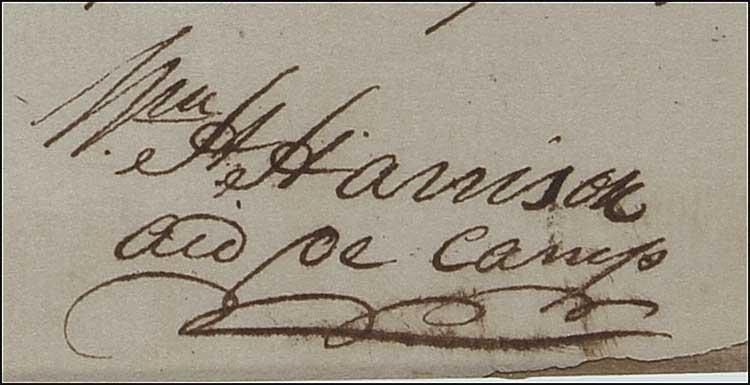 Wm. H. Harrison
aid de camp